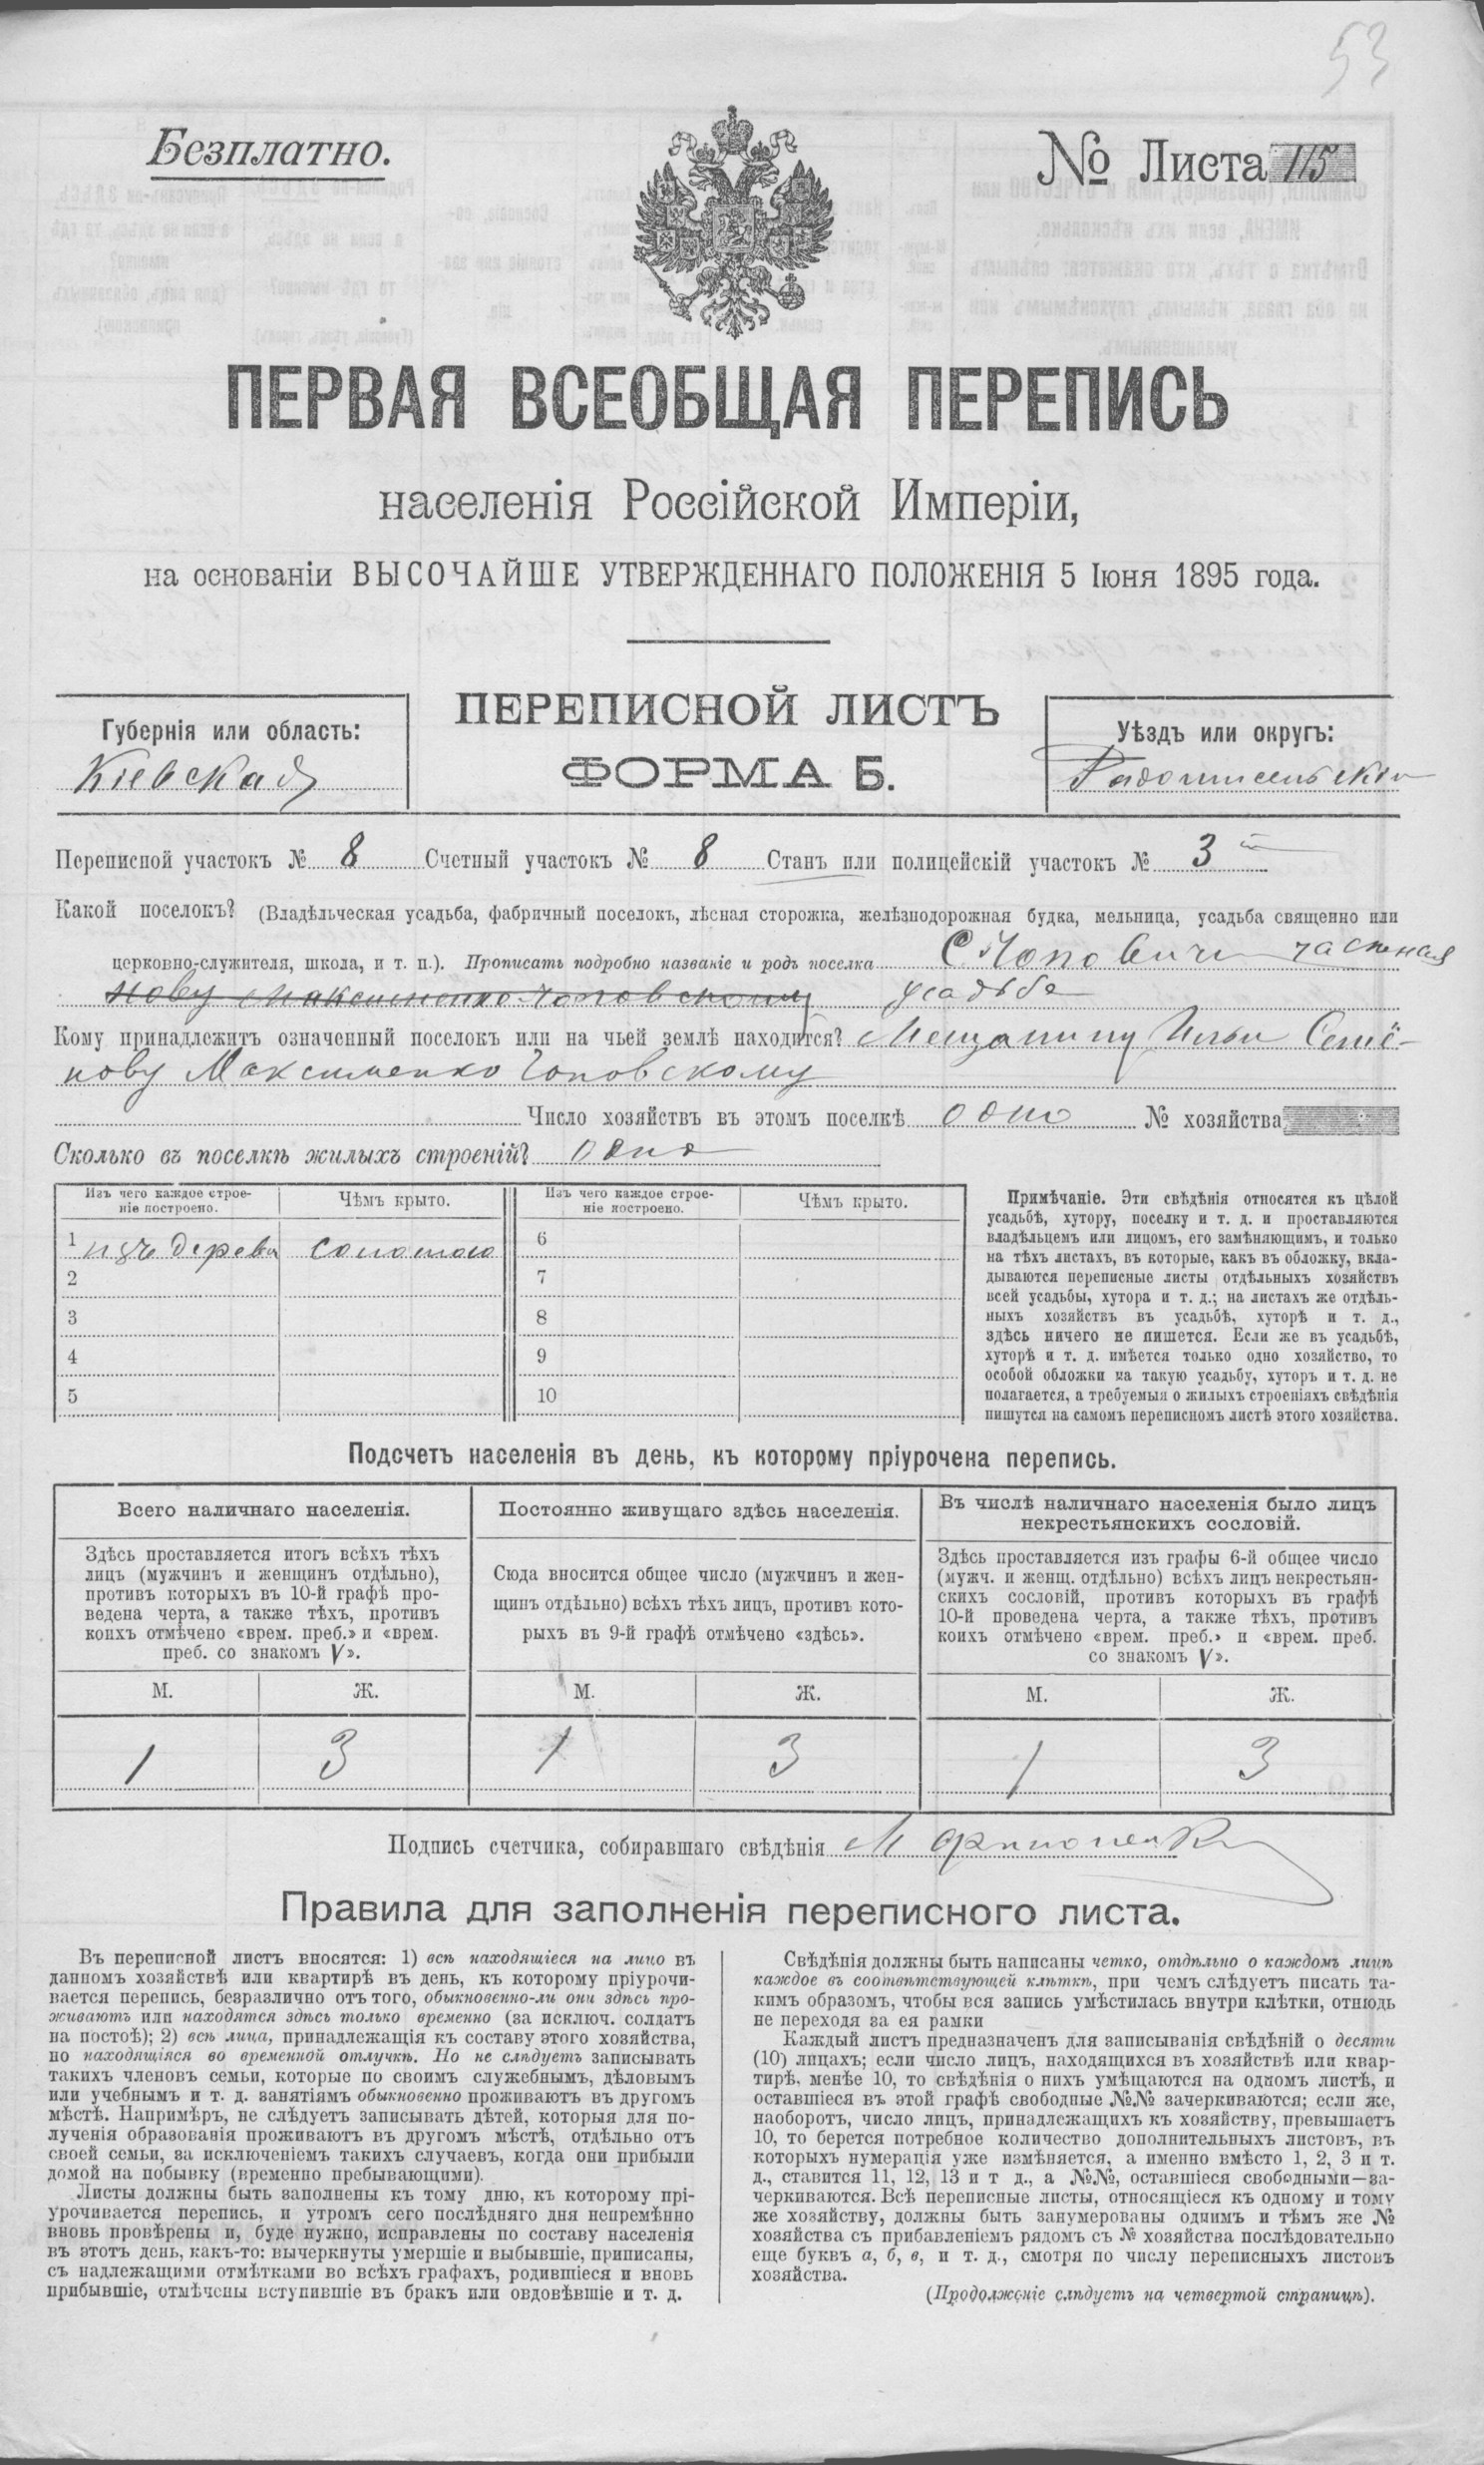 53
Безплатно.
№ Листа 115
ПЕРВАЯ ВСЕОБЩАЯ ПЕРЕПИСЬ
населенія Россійской Имперіи,
на основаніи ВЫСОЧАЙШЕ УТВЕРЖДЕННАГО ПОЛОЖЕНІЯ 5 Іюня 1895 года.
Губернія или область:
Кіевская
ПЕРЕПИСНОЙ ЛИСТЪ
ФОРМА Б.
Уѣздъ или округъ:
Радомысльскій
Переписной участокъ № 8 Счетный участокъ № 8 Станъ или полицейскій участокъ № 3
Какой поселокъ? (Владѣльческая усадьба, фабричный поселокъ, лѣсная сторожка, желѣзнодорожная будка, мельница, усадьба священно или
церковно-служителя, школа, и т. п.). Прописать подробно названіе и родъ поселка С. Чоповичи частная
нову Максименко Чоповскому усадьба
Кому принадлежитъ означенный поселокъ или на чьей землѣ находится? Мещанину Ильи Семё-
нову Максименко Чоповскому
Число хозяйствъ въ этомъ поселкѣ одно № хозяйства
Сколько въ поселкѣ жилыхъ строеній? одно
Изъ чего каждое строе-
ніе построено.
Чѣмъ крыто.
Изъ чего каждое строе-
ніе построено.
Чѣмъ крыто.
1 изъ дерева соломою
6
2
7
3
8
4
9
5
10
Примѣчаніе. Эти свѣдѣнія относятся къ цѣлой
усадьбѣ, хутору, поселку и т. д. и проставляются
владѣльцемъ или лицомъ, его замѣняющимъ, и только
на тѣхъ листахъ, въ которые, какъ въ обложку, вкла-
дываются переписные листы отдѣльныхъ хозяйствъ
всей усадьбы, хутора и т. д.; на листахъ же отдѣль-
ныхъ хозяйствъ въ усадьбѣ, хуторѣ и т. д.,
здѣсь ничего не пишется. Если же въ усадьбѣ,
хуторѣ и т. д. имѣется только одно хозяйство, то
особой обложки на такую усадьбу, хуторъ и т. д. не
полагается, а требуемыя о жилыхъ строеніяхъ свѣдѣнія
пишутся на самомъ переписномъ листѣ этого хозяйства.
Подсчетъ населенія въ день, къ которому пріурочена перепись.
Всего наличнаго населенія.
Здѣсь проставляется итогъ всѣхъ тѣхъ
лицъ (мужчинъ и женщинъ отдѣльно),
противъ которыхъ въ 10-й графѣ про-
ведена черта, а также тѣхъ, противъ
коихъ отмѣчено «врем. преб.» и «врем.
преб. со знакомъ V».
М. Ж.
1 3
Постоянно живущаго здѣсь населенія.
Сюда вносится общее число (мужчинъ и жен-
щинъ отдѣльно) всѣхъ тѣхъ лицъ, противъ кото-
рыхъ въ 9-й графѣ отмѣчено «здѣсь».
М. Ж.
1 3
Въ числѣ наличнаго населенія было лицъ
некрестьянскихъ сословій.
Здѣсь проставляется изъ графы 6-й общее число
(мужч. и женщ. отдѣльно) всѣхъ лицъ некрестьян-
скихъ сословій, противъ которыхъ въ графѣ
10-й проведена черта, а также тѣхъ, противъ
коихъ отмѣчено «врем. преб.» и «врем. преб.
со знакомъ V».
М. Ж.
1 3
Подпись счетчика, собиравшаго свѣдѣнія
Правила для заполненія переписного листа.
Въ переписной листъ вносятся: 1) всѣ находящіеся на лицо въ
данномъ хозяйствѣ или квартирѣ въ день, къ которому пріурочи-
вается перепись, безразлично отъ того, обыкновенно-ли они здѣсь про-
живаютъ или находятся здѣсь только временно (за исключ. солдатъ
на постоѣ); 2) всѣ лица, принадлежащія къ составу этого хозяйства,
но находящіяся во временной отлучкѣ. Но не слѣдуетъ записывать
такихъ членовъ семьи, которые по своимъ служебнымъ, дѣловымъ
или учебнымъ и т. д. занятіямъ обыкновенно проживаютъ въ другомъ
мѣстѣ. Напримѣръ, не слѣдуетъ записывать дѣтей, которыя для по-
лученія образованія проживаютъ въ другомъ мѣстѣ, отдѣльно отъ
своей семьи, за исключеніемъ такихъ случаевъ, когда они прибыли
домой на побывку (временно пребывающими).
Листы должны быть заполнены къ тому дню, къ которому прі-
урочивается перепись, и утромъ сего послѣдняго дня непремѣнно
вновь провѣрены и, буде нужно, исправлены по составу населенія
въ этотъ день, какъ-то: вычеркнуты умершіе и выбывшіе, приписаны,
съ надлежащими отмѣтками во всѣхъ графахъ, родившіеся и вновь
прибывшіе, отмѣчены вступившіе въ бракъ или овдовѣвшіе и т. д.
Свѣдѣнія должны быть написаны четко, отдѣльно о каждомъ лицѣ
каждое въ соотвѣтствующей клѣткѣ, при чемъ слѣдуетъ писать та-
кимъ образомъ, чтобы вся запись умѣстилась внутри клѣтки, отнюдь
не переходя за ея рамки
Каждый листъ предназначенъ для записыванія свѣдѣній о десяти
(10) лицахъ; если число лицъ, находящихся въ хозяйствѣ или квар-
тирѣ, менѣе 10, то свѣдѣнія о нихъ умѣщаются на одномъ листѣ, и
оставшіеся въ этой графѣ свободные №№ зачеркиваются; если же,
наоборотъ, число лицъ, принадлежащихъ къ хозяйству, превышаетъ
10, то берется потребное количество дополнительныхъ листовъ, въ
которыхъ нумерація уже измѣняется, а именно вмѣсто 1, 2, 3 и т.
д., ставится 11, 12, 13 и т д., а №№, оставшіеся свободными—за-
черкиваются. Всѣ переписные листы, относящіеся къ одному и тому
же хозяйству, должны быть занумерованы однимъ и тѣмъ же №
хозяйства съ прибавленіемъ рядомъ съ № хозяйства послѣдовательно
еще буквъ а, б, в, и т. д., смотря по числу переписныхъ листовъ
хозяйства.
(Продолженіе слѣдуетъ на четвертой страницѣ).